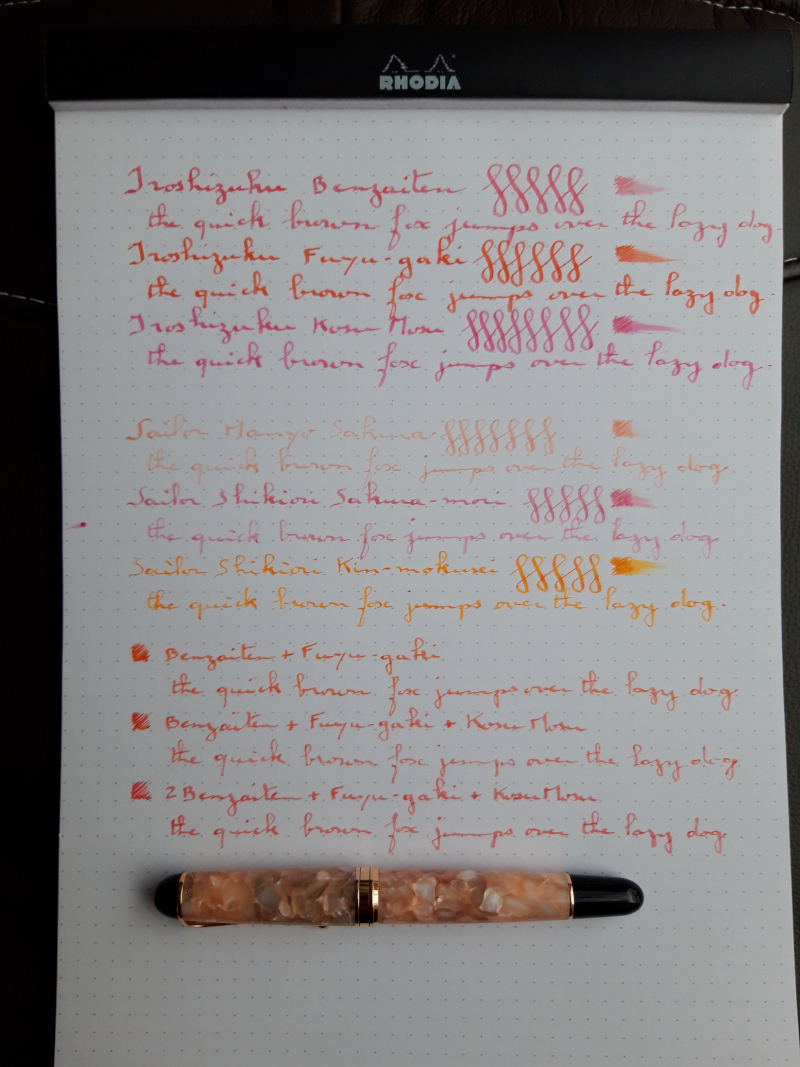 RHODIA
Iroshizuku Benzaiten
the quick brown fox jumps over the lazy dog.
Iroshizuku Fuyu-gaki
the quick brown fox jumps over the lazy dog.
Iroshizuku Kosu Mosu
the quick brown fox jumps over the lazy dog.
Sailor Manyo Sakura
the quick brown fox jumps over the lazy dog
Sailor Shikiori Sakura-mori
the quick brown fox jumps over the lazy dog
Sailor Shikiori Kin-mokusei
the quick brown fox jumps over the lazy dog.
Benzaiten + Fuyu-gaki
the quick brown fox jumps over the lazy dog.
Benzaiten + Fuyu-gaki + Kosu Mosu
the quick brown fox jumps over the lazy dog.
2 Benzaiten + Fuyu-gaki + Kosu Mosu
the quick brown fox jumps over the lazy dog